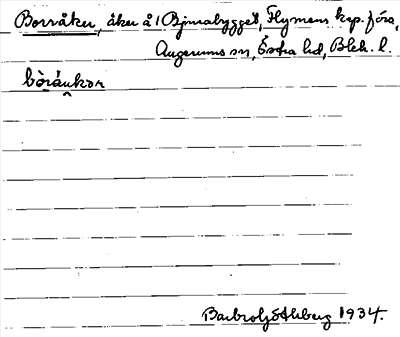 Borråker, åker å Björsabygget, Flymens kap.förs,
Augerums sn, Östra hd, Blek. l.
bòrákor
Barbro Göthberg 1934.